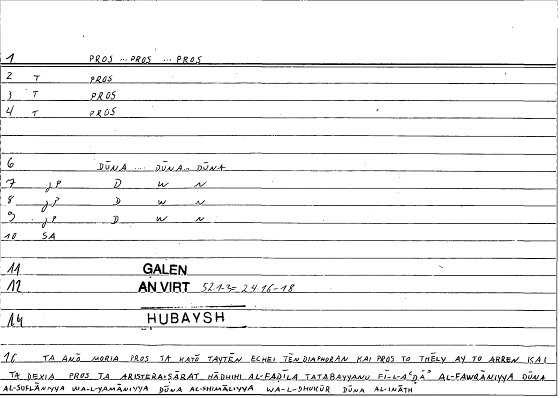 1 PROS ... PROS ... PROS
2 T PROS
3 T PROS
4 T PROS
6 DŪNA .... DŪNA... DŪNA
7 JP D W N
8 JP D W N
9 JP D W N
10 SA
11 GALEN
12 AN VIRT 521-3 = 24 16-18
14 HUBAYSH
16 TA ANŌ MORIA PROS TA KATŌ TAYTĒN ECHEI TĒN DIAPHORAN KAI PROS TO THĒLY AY TO ARREN KAI
TA DEXIA PROS TA ARISTERA: ṢĀRAT HĀDHIHI AL-FAḌĪLA TATABAYYANU FĪ-L-AʿḌĀʾ AL-FAWRĀNIYYA DŪNA
AL-SUFLĀNIYYA WA-L-YAMĀNIYYA DŪNA AL-SHIMĀLIYYA WA-L-DHUKŪR DŪNA AL-INĀTH